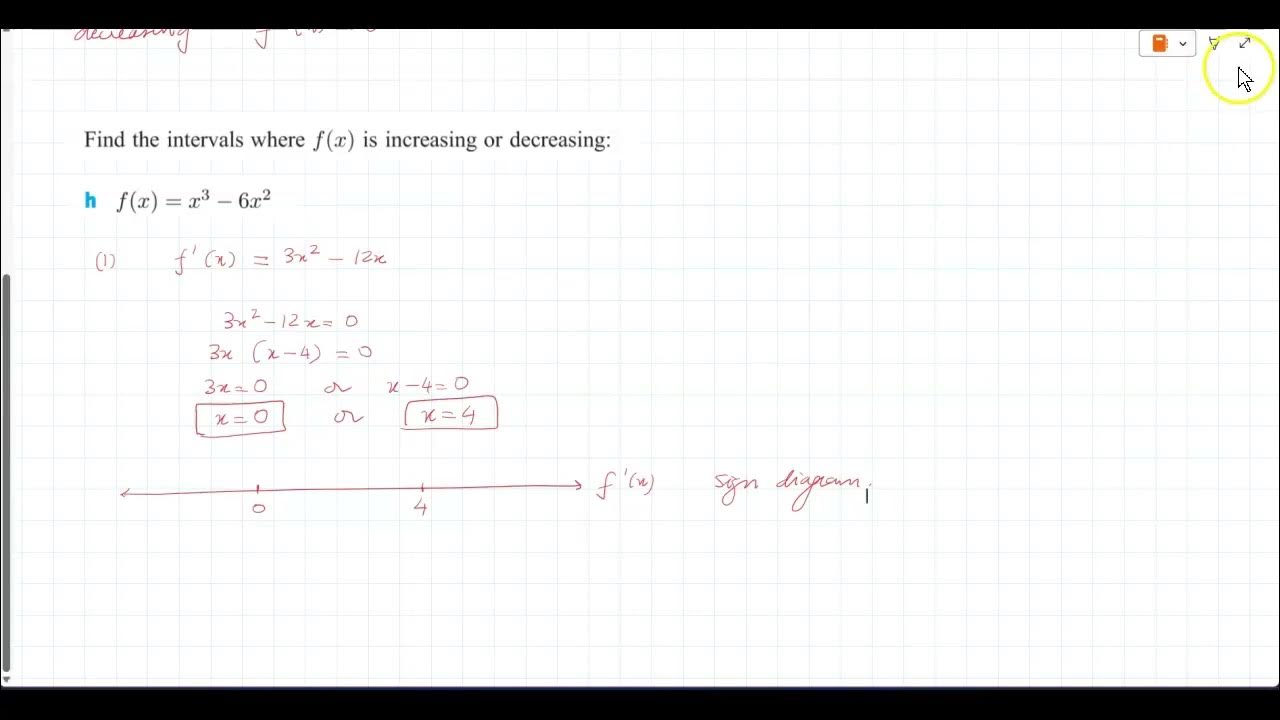 decreasing
Find the intervals where f(x) is increasing or decreasing:
h f(x) = x³ − 6x²
(1) f'(x) = 3x² − 12x
3x² − 12x = 0
3x (x − 4) = 0
3x = 0 or x − 4 = 0
x = 0 or x = 4
f'(x) sign diagram.
0 4